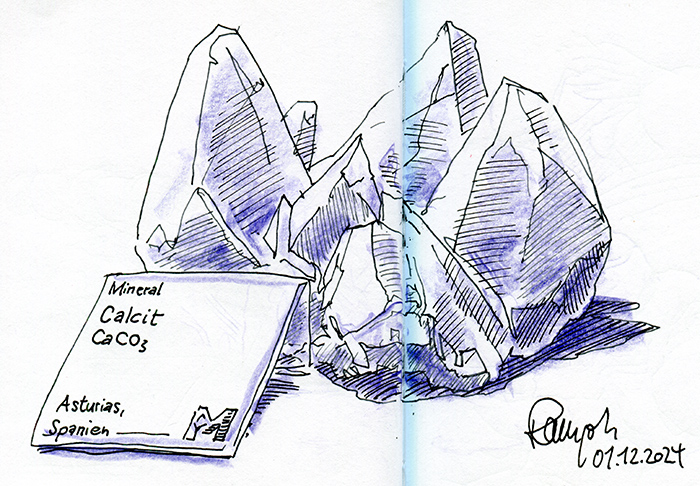 Mineral
Calcit
CaCO₃
Asturias,
Spanien
01.12.2024